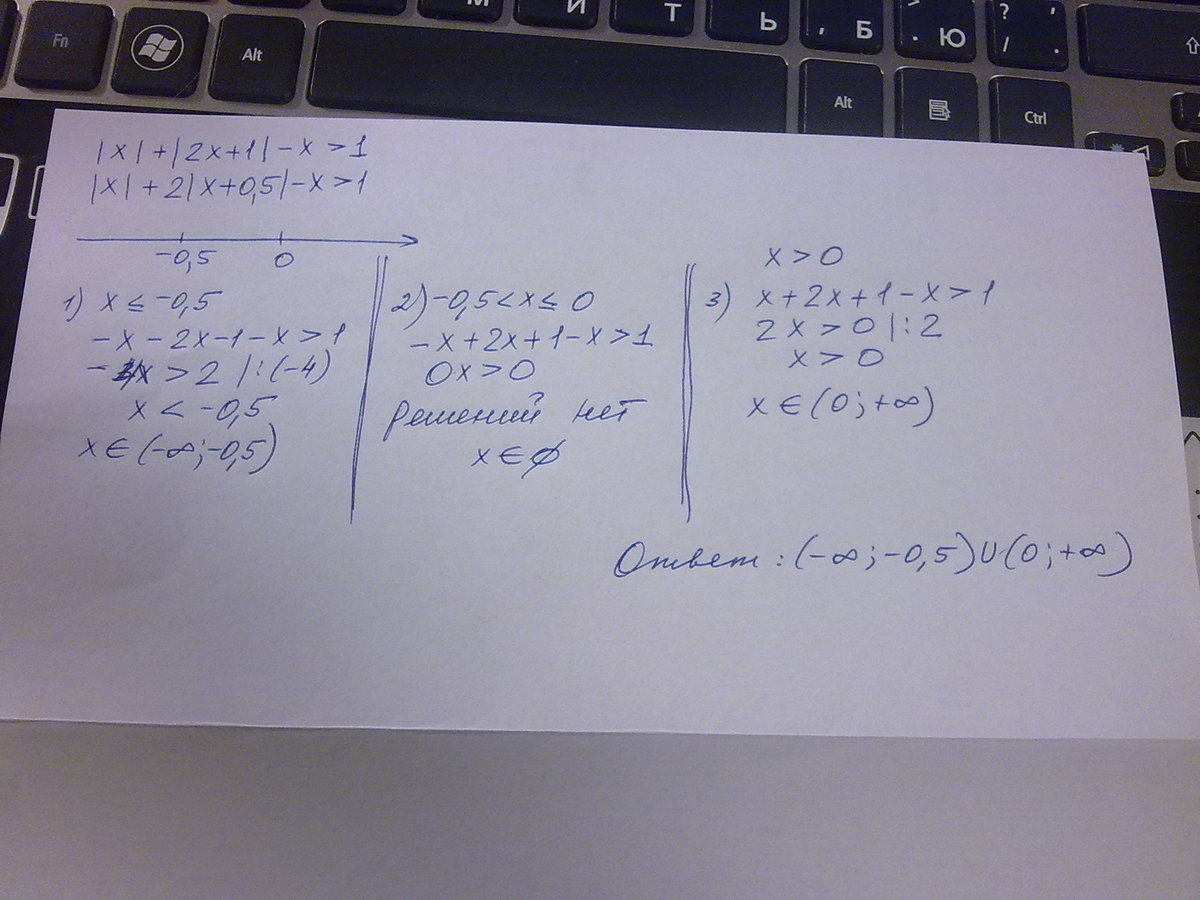 м и т ь , Б > . Ю ? ' / .
Fn Alt Alt Ctrl
|x|+|2x+1|-x>1
|x|+2|x+0,5|-x>1
-0,5 0
1) x≤-0,5
-x-2x-1-x>1
-4x>2 |:(-4)
x<-0,5
x∈(-∞;-0,5)
2) -0,5<x≤0
-x+2x+1-x>1
0x>0
решений нет
x∈∅
x>0
3) x+2x+1-x>1
2x>0 |:2
x>0
x∈(0;+∞)
Ответ: (-∞;-0,5)∪(0;+∞)